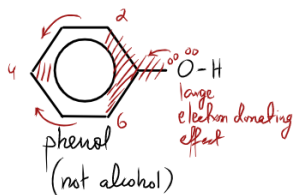 2
4
O-H
large
electron donating
effect
6
phenol
(not alcohol)